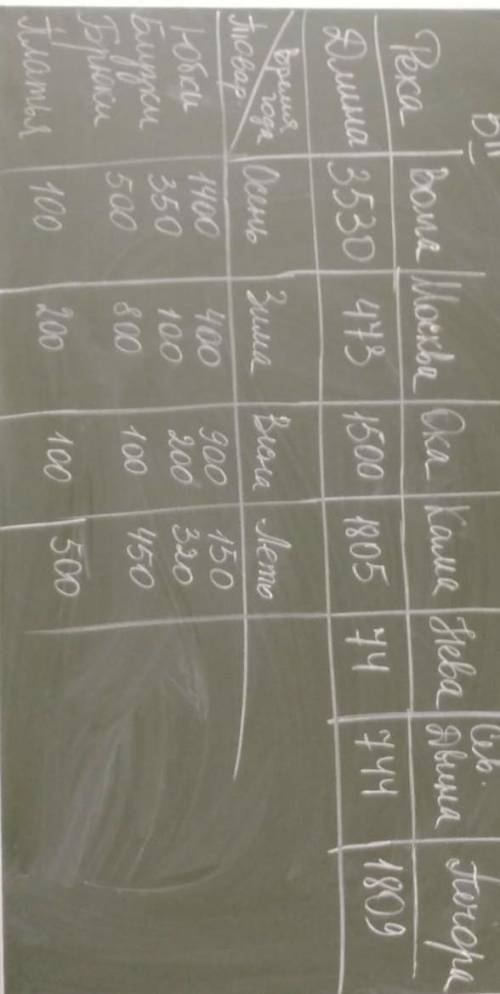 Вп
Река Волга Москва Ока Кама Нева Сев. Двина Печора
Длина 3530 473 1500 1805 74 744 1809
Товар Время года Осень Зима Весна Лето
Юбки 1400 400 900 150
Блузки 350 100 200 320
Брюки 500 800 100 450
Платья 100 200 100 500